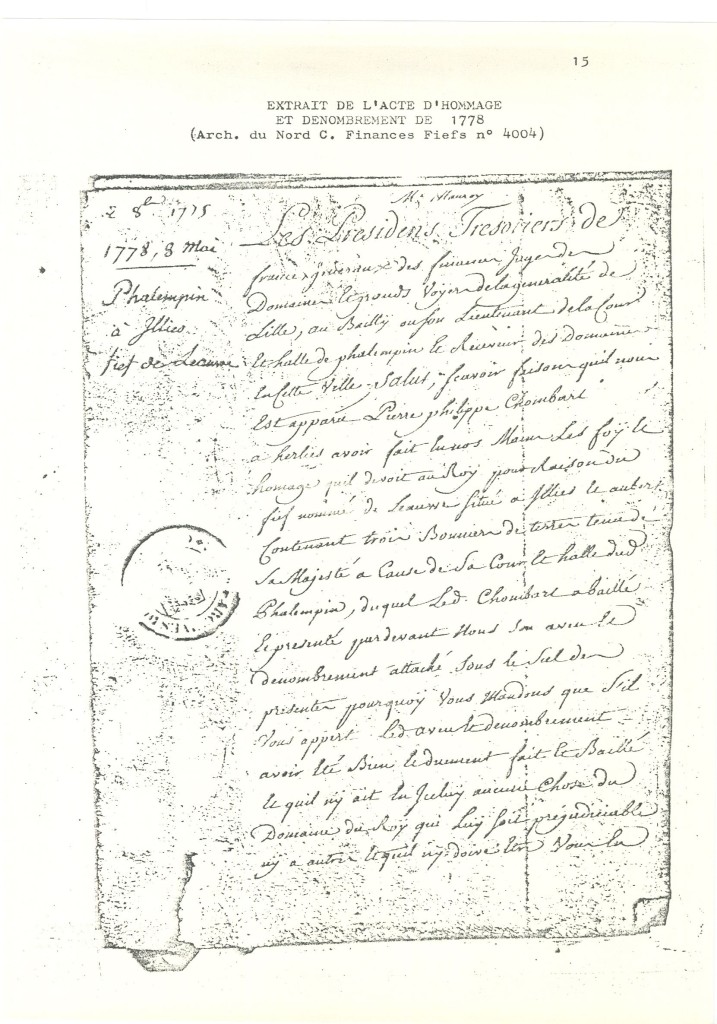 15
EXTRAIT DE L'ACTE D'HOMMAGE
ET DENOMBREMENT DE 1778
(Arch. du Nord C. Finances Fiefs n° 4004)
1778, 8 Mai
Phalempin
à Illies
fief de Leauwe
Les Presidens Tresoriers de
france, generaux des finances Juges du
Domaine et grands Voyers de la generalité de
Lille, au Bailly ou son Lieutenant de la Cour
et halle de phalempin et Receveur des Domaines
en Cette Ville, Salut, scavoir faisons quil nous
est apparu Pierre philippe Chombart
a herlies avoir fait en nos Mains Les foy et
homage quil devoit au Roy pour Raison du
fief nommé de Leauwe situé a Illies et
Contenant trois Bonniers de terre tenu de
Sa Majesté a Cause de Sa Cour et halle dud
Phalempin, duquel Led. Chombart a baillé
et presenté pardevant Nous son aveu et
denombrement attaché sous le Scel des
presentes pourquoy Vous Mandons que S'il
Vous appert Led aveu et denombrement
avoir été Bien et duement fait et Baillé
et quil ny ait en Iceluy aucune Chose du
Domaine du Roy qui Luy soit préjudiciable
ny a autre et quil ny doive Vous en